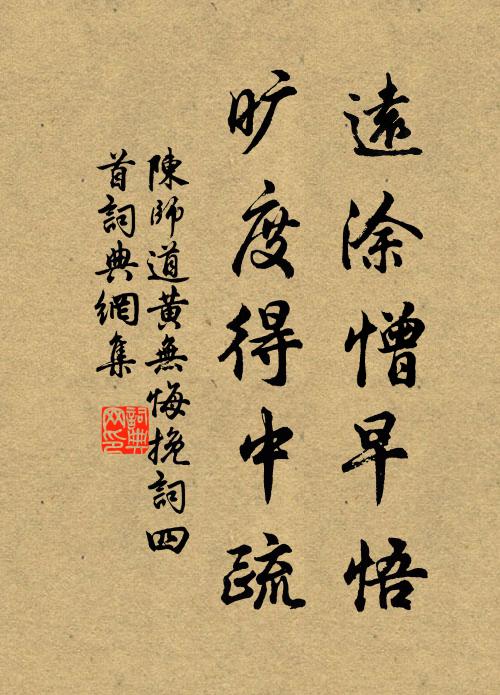 遠涂憎早悟
旷度得中疏
陳師道黃無悔挽詞四
首詞典網集
詞典
网印